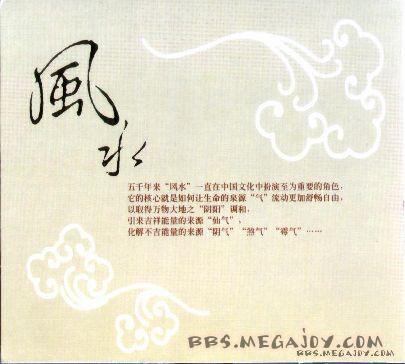 風水
五千年来“风水”一直在中国文化中扮演至为重要的角色，
它的核心就是如何让生命的泉源“气”流动更加舒畅自由，
以取得万物大地之“阴阳”调和，
引来吉祥能量的来源“仙气”，
化解不吉能量的来源“阴气”“煞气”“霉气”……
BBS.MEGAJOY.COM
BBS.MEGAJOY.COM